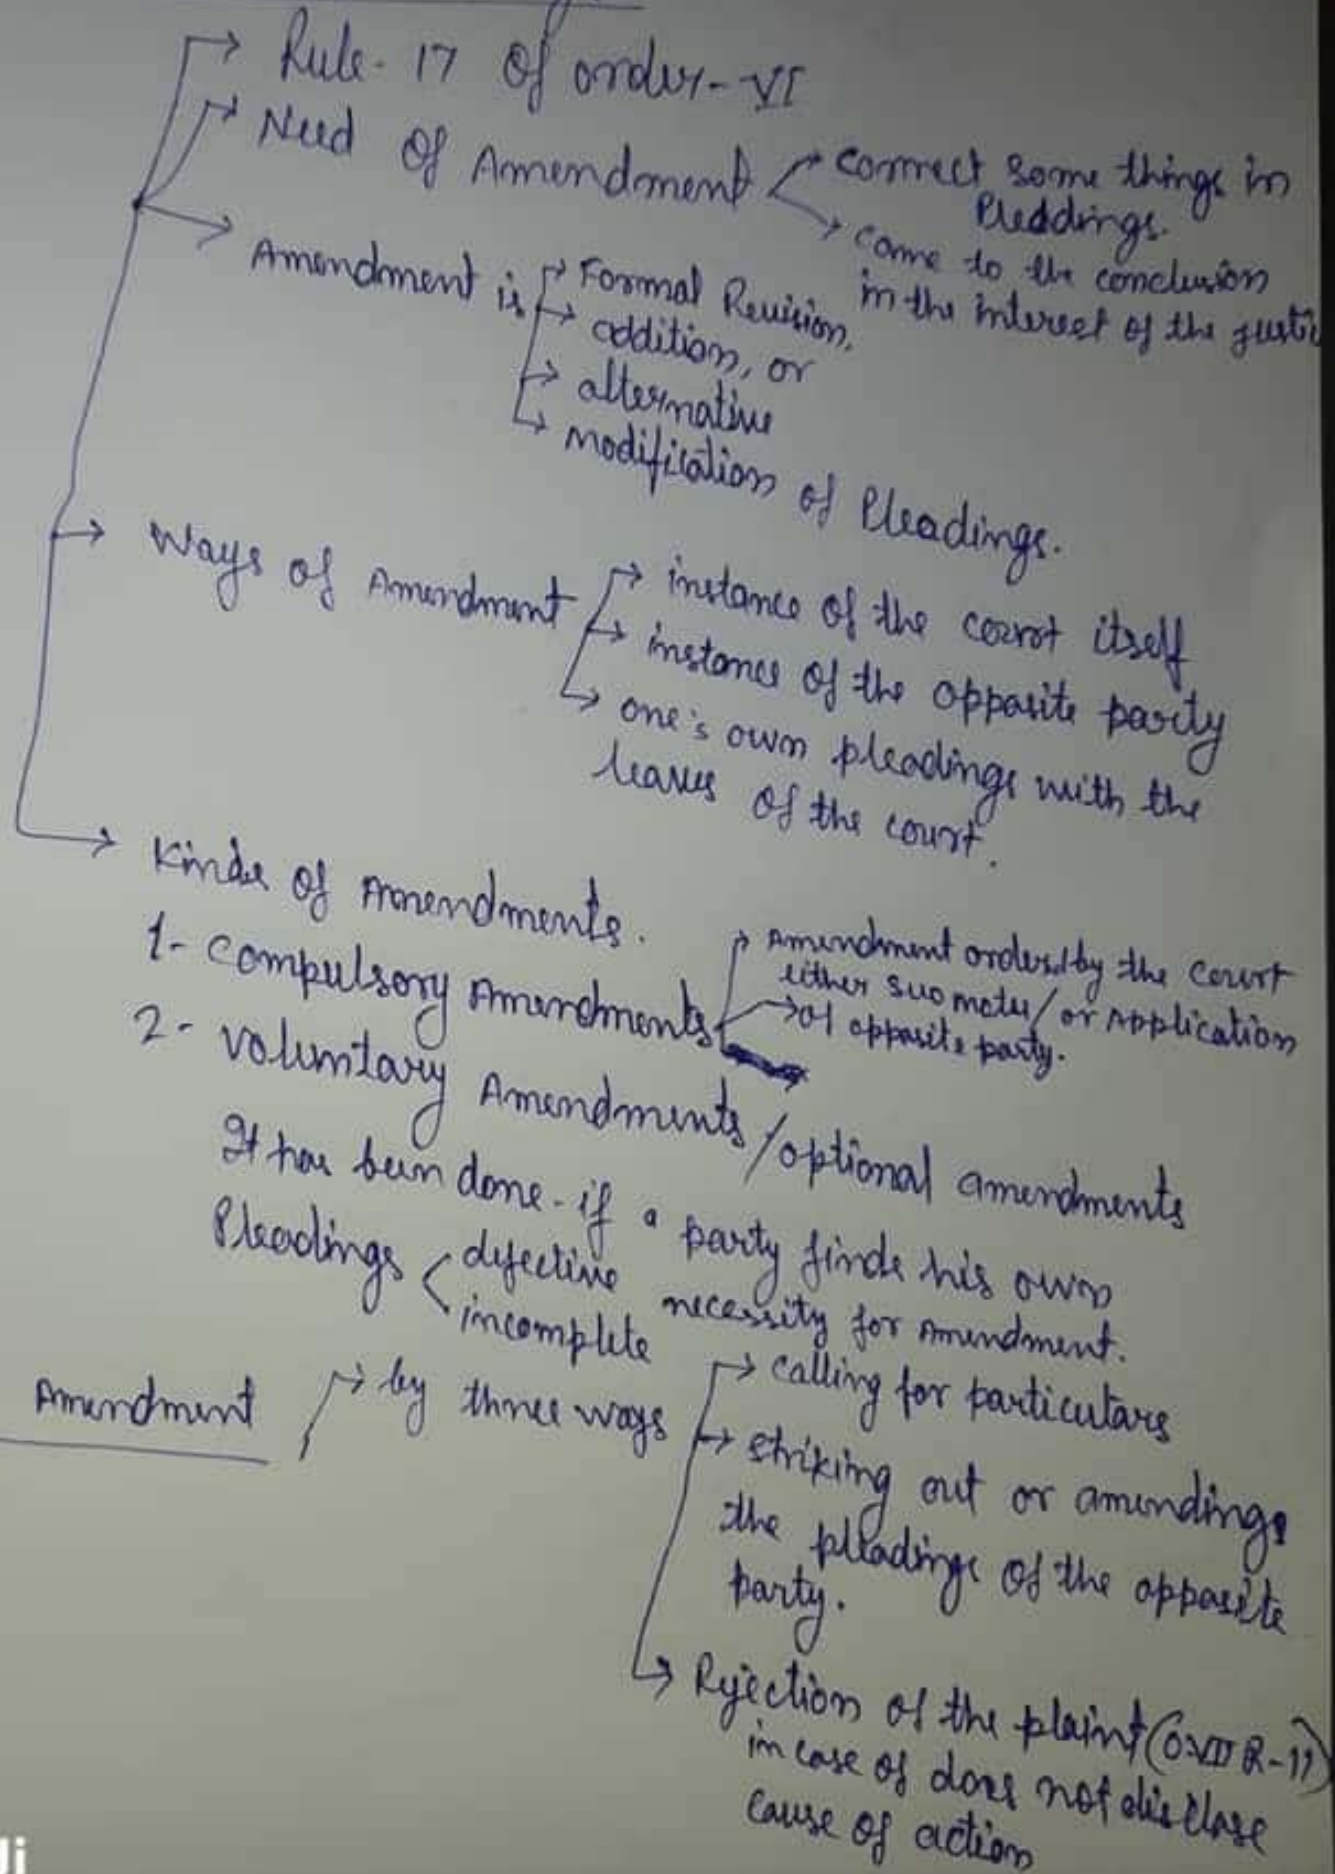 Rule- 17 of order-VI
Need of Amendment
correct some things in
Pleddings.
come to the conclusion
in the interest of the justic
Amendment is
Formal Revision,
addition, or
alternative
modification of Pleadings.
Ways of Amendment
instance of the court itself
instance of the opposite party
one's own pleadings with the
leaves of the court.
Kinds of Amendments.
1- Compulsory Amendments
Amendment ordered by the Court
either suo motu/or Application
of opposite party.
2- Voluntary Amendments/optional amendments
It has been done- if a party finds his own
Pleadings
defective
incomplete
necessity for Amendment.
Amendment
by three ways
calling for particulars
striking out or amendings
the pleadings of the opposite
party.
Rejection of the plaint (O.VII R-11)
in case of does not disclose
cause of action